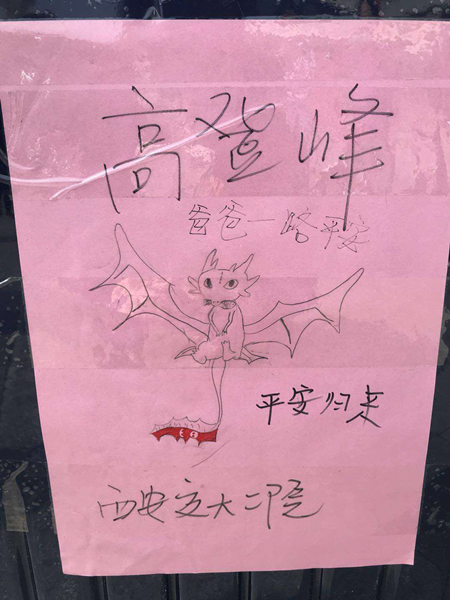 高登峰
爸爸一路平安
平安归来
西安交大二院